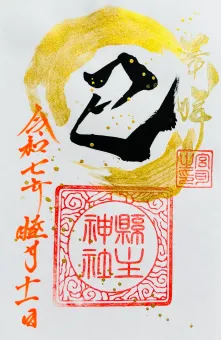 巳
令和七年 睦月十一日
縣主
神社